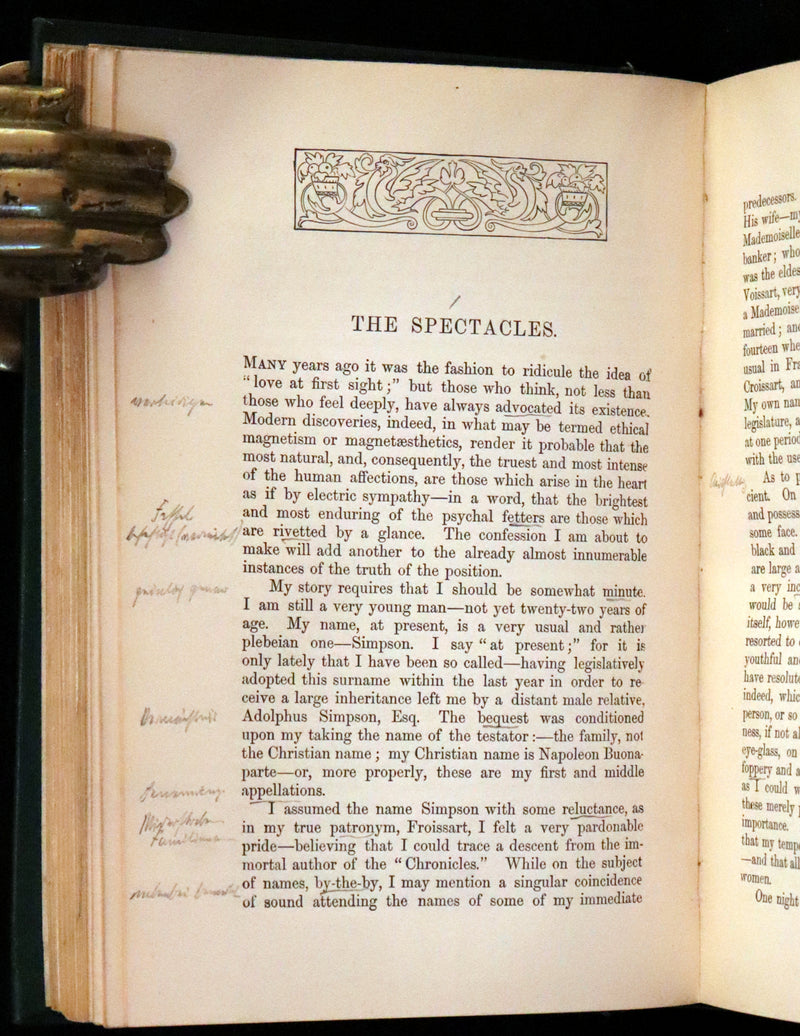 THE SPECTACLES.
MANY years ago it was the fashion to ridicule the idea of
“love at first sight;” but those who think, not less than
those who feel deeply, have always advocated its existence.
Modern discoveries, indeed, in what may be termed ethical
magnetism or magnetæsthetics, render it probable that the
most natural, and, consequently, the truest and most intense
of the human affections, are those which arise in the heart
as if by electric sympathy—in a word, that the brightest
and most enduring of the psychal fetters are those which
are rivetted by a glance. The confession I am about to
make will add another to the already almost innumerable
instances of the truth of the position.
My story requires that I should be somewhat minute.
I am still a very young man—not yet twenty-two years of
age. My name, at present, is a very usual and rather
plebeian one—Simpson. I say “at present;” for it is
only lately that I have been so called—having legislatively
adopted this surname within the last year in order to re-
ceive a large inheritance left me by a distant male relative,
Adolphus Simpson, Esq. The bequest was conditioned
upon my taking the name of the testator:—the family, not
the Christian name; my Christian name is Napoleon Buona-
parte—or, more properly, these are my first and middle
appellations.
I assumed the name Simpson with some reluctance, as
in my true patronym, Froissart, I felt a very pardonable
pride—believing that I could trace a descent from the im-
mortal author of the “Chronicles.” While on the subject
of names, by-the-by, I may mention a singular coincidence
of sound attending the names of some of my immediate
predecessors.
His wife—my
Mademoiselle
banker; who
was the eldes
Voissart, very
a Mademoise
married; and
fourteen whe
usual in Fra
Croissart, an
My own nam
legislature, a
at one period
with the use
As to p
cient. On
and possess
some face.
black and
are large a
a very inc
would be
itself, howe
resorted to
youthful an
have resolute
indeed, whic
person, or so
ness, if not al
eye-glass, on
foppery and a
as I could w
these merely p
importance.
that my tempe
—and that all
women.
One night